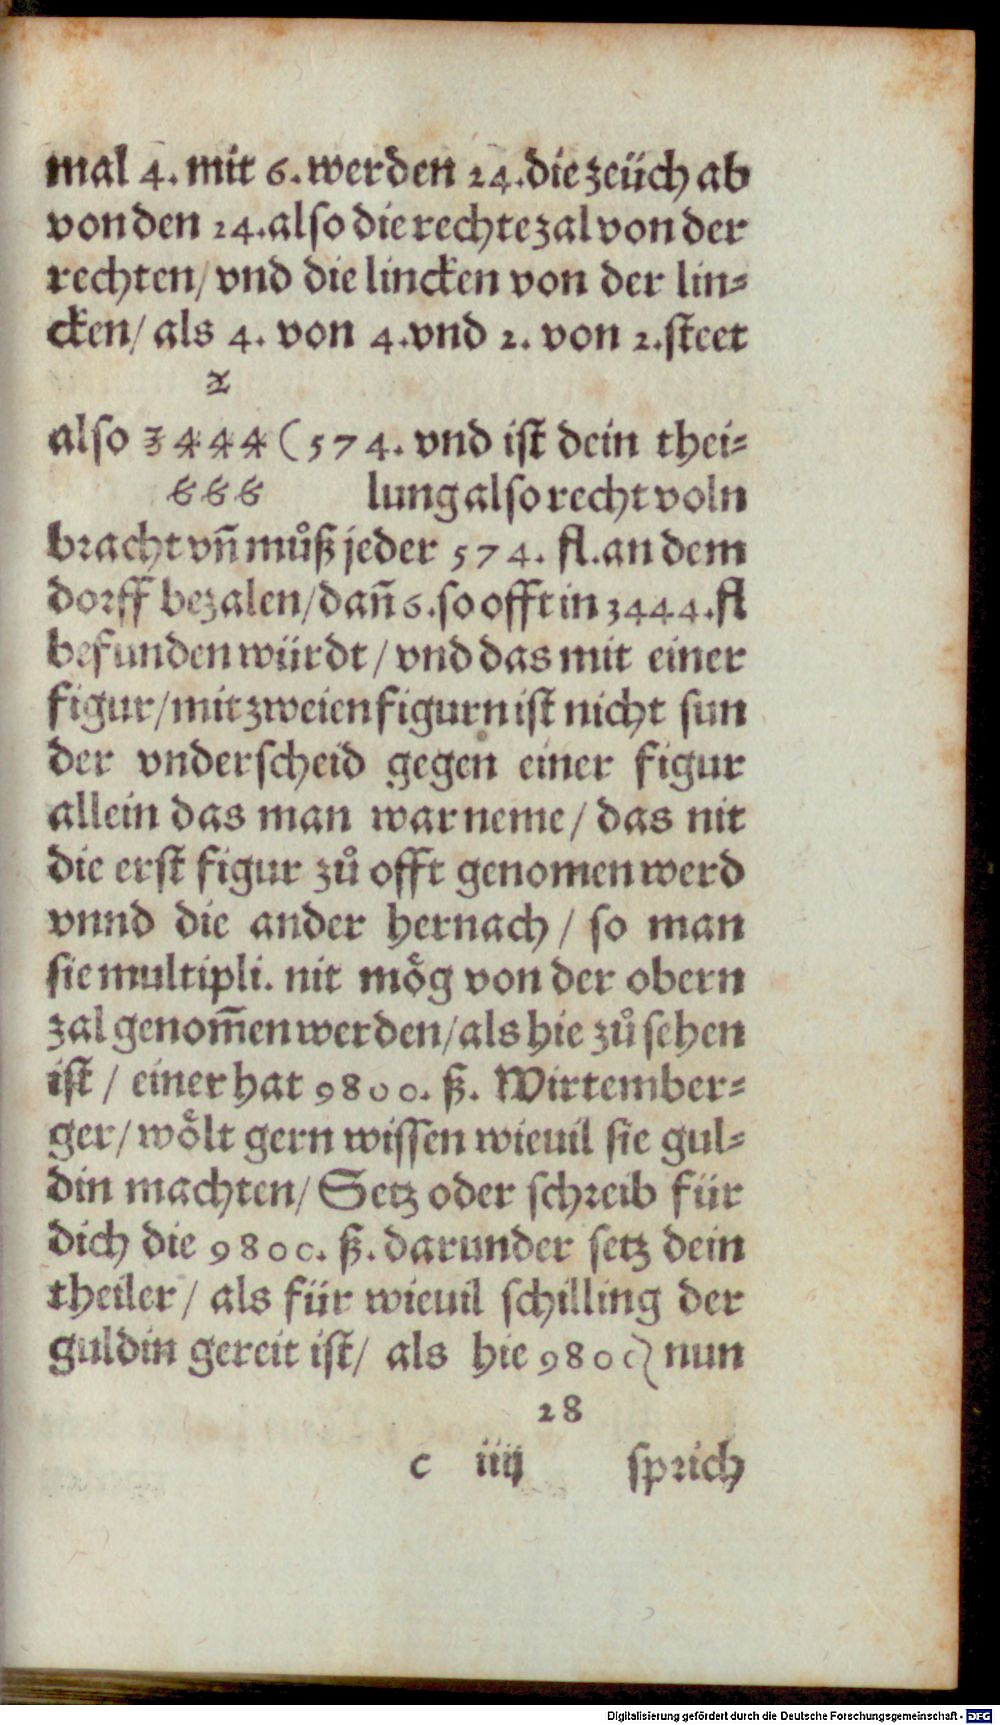 mal 4. mit 6. werden 24. die zeüch ab
von den 24. also die rechte zal von der
rechten/ vnd die lincken von der lin⸗
cken/ als 4. von 4. vnd 2. von 2. steet
2
also 3444 (574. vnd ist dein thei⸗
666 lung also recht voln
bracht vn̄ můß jeder 574. fl. an dem
dorff bezalen/ dan̄ 6. so offt in 3444. fl
befunden würdt/ vnd das mit einer
figur/ mit zweien figurn ist nicht sun
der vnderscheid gegen einer figur
allein das man war neme/ das nit
die erst figur zů offt genomen werd
vnnd die ander hernach/ so man
sie multipli. nit mög von der obern
zal genom̄en werden/ als hie zů sehen
ist/ einer hat 9800. ß. Wirtember⸗
ger/ wölt gern wissen wieuil sie gul⸗
din machten/ Setz oder schreib für
dich die 9800. ß. darunder setz dein
theiler/ als für wieuil schilling der
guldin gereit ist/ als hie 9800) nun
28
c iiij sprich
Digitalisierung gefördert durch die Deutsche Forschungsgemeinschaft - DFG